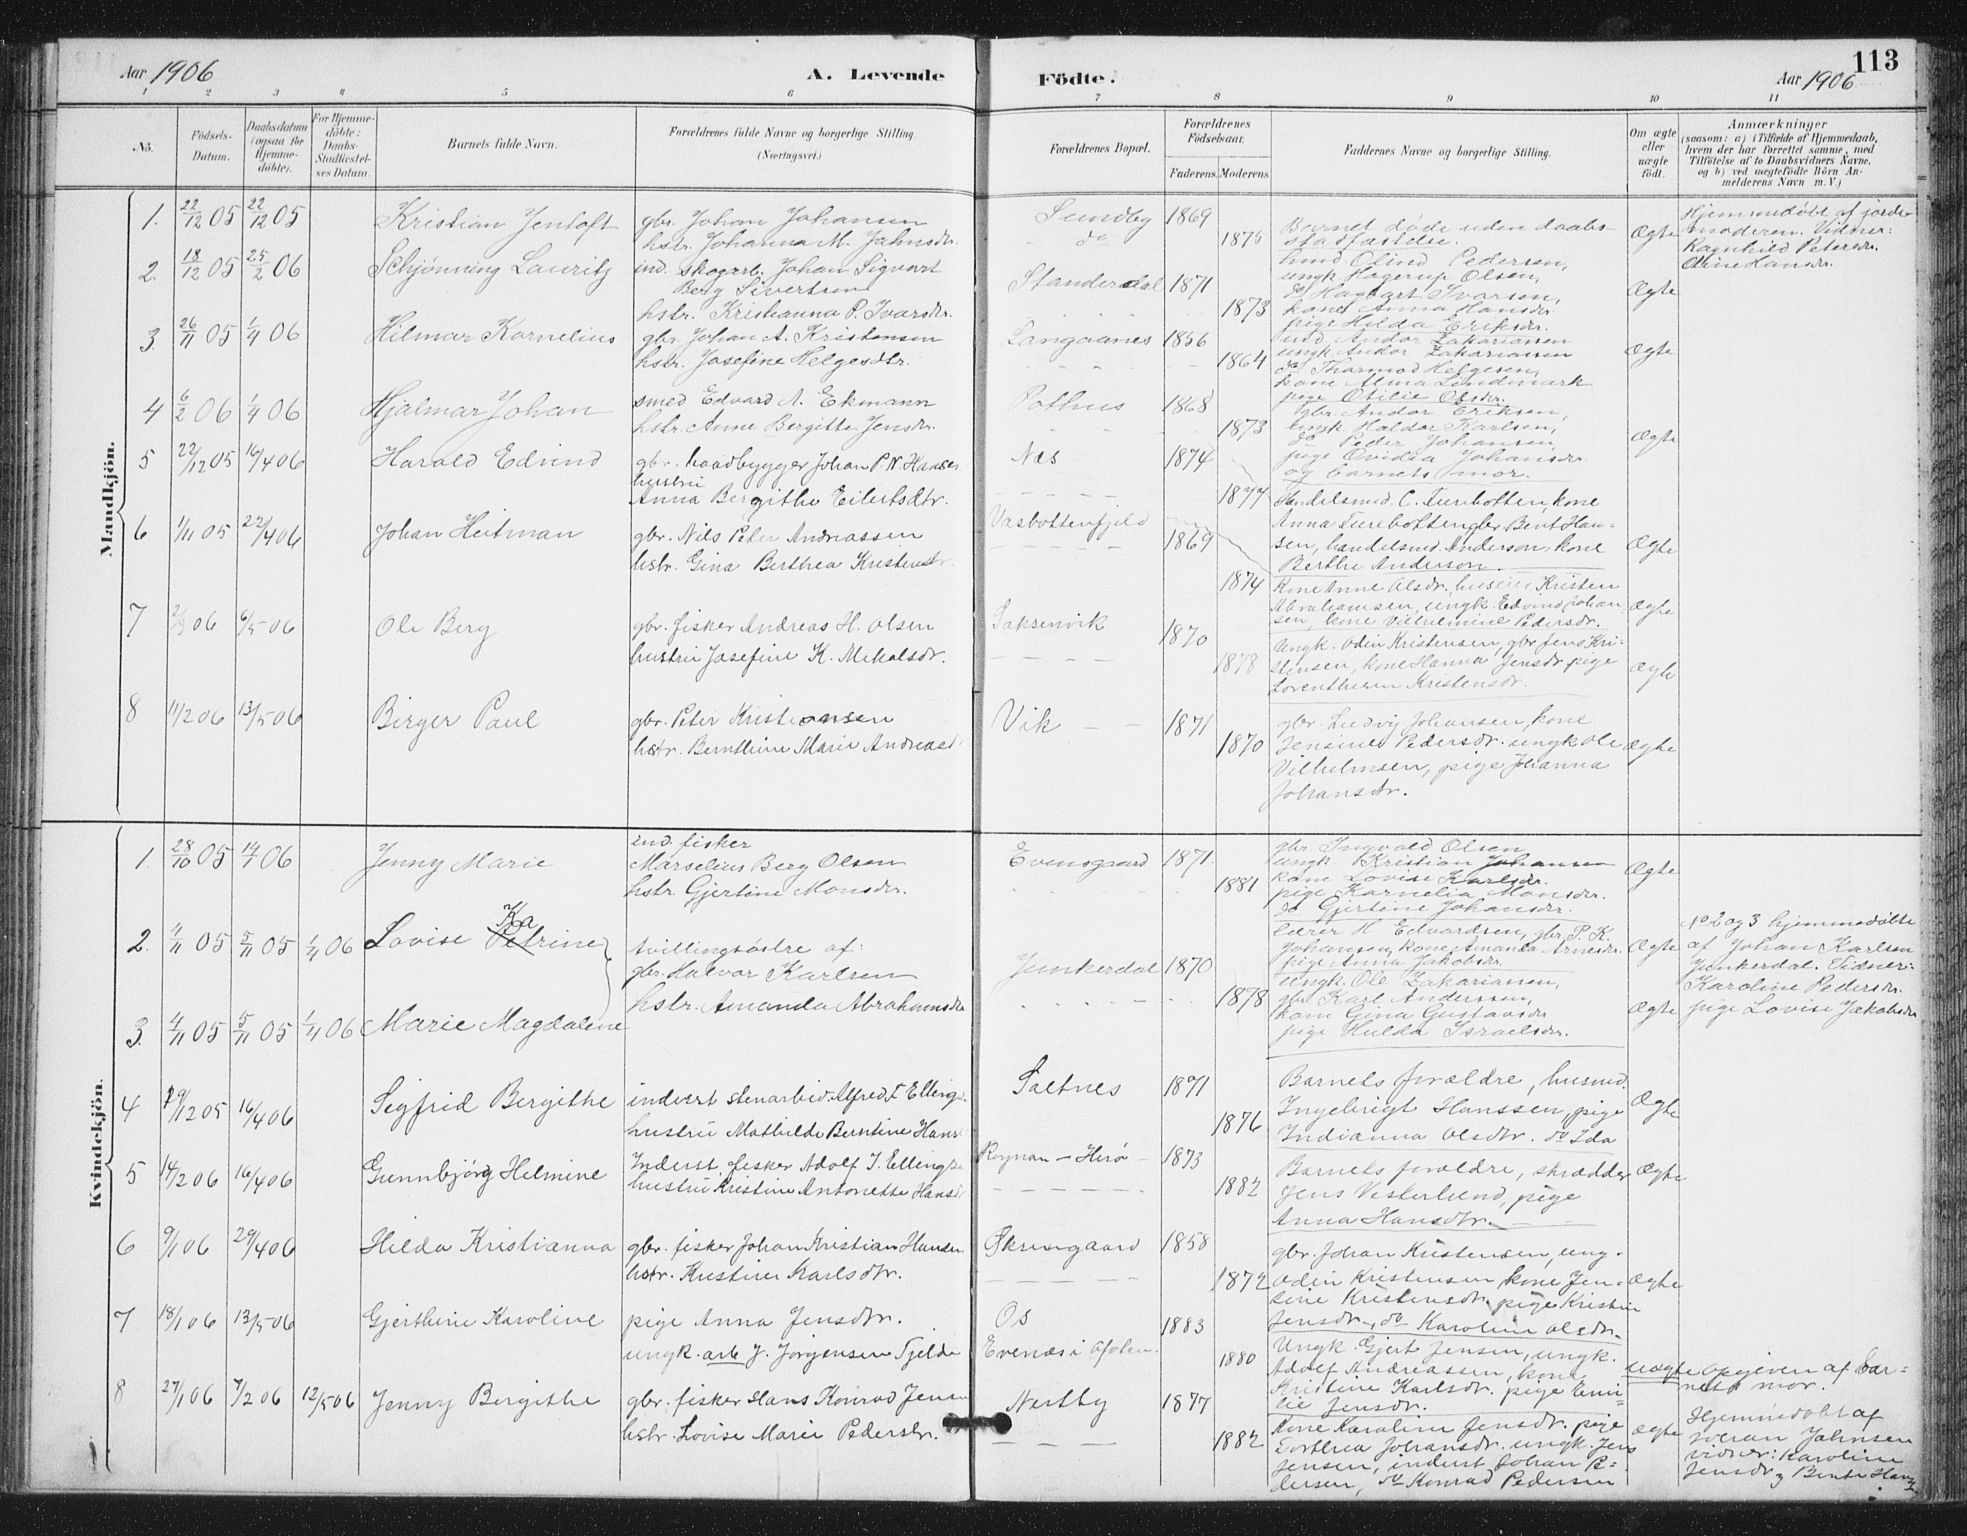 113
Aar 1906
A. Levende
Födte.
Aar 1906
1 2 3 4 5 6 7 8 9 10 11
No.
Födsels-Datum.
Daabsdatum (ogsaa for Hjemme-döbte).
For Hjemme-döbte: Daabs-Stadfæstel-ses Datum.
Barnets fulde Navn.
Forældrenes fulde Navne og borgerlige Stilling.
(Næringsvei.)
Forældrenes Bopæl.
Forældrenes Födselsaar.
Faderens. Moderens.
Faddernes Navne og borgerlige Stilling.
Om ægte eller uægte födt.
Anmærkninger
(saasom: a) i Tilfælde af Hjemmedaab, hvem der har forrettet samme, med Tilföielse af to Daabsvidners Navne, og b) ved uægtefödte Börn An-melderens Navn m. V.)
Mandkjön.
1. 22/12 05 22/12 05 Kristian Jentoft
gbr. Johan Johansen
hstr. Johanna M. Jahnsdr.
Sundby 1869
do 1876
Barnet døde uden daabs-
stadfæstelse.
Ægte
Hjemmedøbt af jorde-
moderen. Vidner:
Ragnhild Petersdr.
2. 18/12 05 25/2 06 Schjønning Lauritz
ind. skogarb. Johan Sigvart
Berg Sivertsen
hstr. Kristianna P. Ivarsdr.
1871
1873
husd. Olind Pedersen,
ungk. Hagerup Olsen,
do Hagbart Ivarsen,
kone Anna Hansdr.
pige Hilda Eriksdr.
Ægte
3. 26/11 05 1/4 06 Hilmar Kornelius
gbr. Johan A. Kristensen
hstr. Josefine Helgesdtr.
Langaanes 1856
1864
ind. Andor Zakariassen
ungk. Andor Zakariassen
do Thormod Helgesen,
kone Alma Lindmark
pige Otilie Olsdr.
Ægte
4 6/2 06 1/4 06 Hjalmar Johan
smed Edvard A. Ekmann
hstr. Anne Bergitte Jensdr.
Pothus 1868
1873
gbr. Andor Eriksen,
ungk. Haldor Karlsen,
do Peder Johansen,
pige Ovidia Johansdr.
og barnets mor.
Ægte
5 22/12 05 16/4 06 Harald Edvind
gbr. baadbygger Johan P. N. Hansen
hustru
Anna Bergithe Eilertsdtr.
Næs 1874
1877
Handelsmd. C. Turebotten, kone
Anna Turebotten, gbr. Bent Han-
sen, handelsmd. Anderson, kone
Berthe Anderson.
Ægte
6 1/11 05 22/4 06 Johan Heitman
gbr. Nils Peter Andreassen
hstr. Gina Berthea Kristensdr.
Vasbottenfjeld
1869
1874
Kone Anne Olsdr., huseier Kristen
Abrahamsen, ungk. Edvind Johan-
sen, kone Vilhelmine Pedersdr.
Ægte
7 2/3 06 6/5 06 Ole Berg
gbr. fisker Andreas H. Olsen
hustru Josefine K. Mikalsdr.
Saksenvik
1870
1878
Ungk. Odin Kristensen, gbr. Jens Kri-
stensen, kone Hanna Jensdr, pige
Kristensdr.
Ægte
8 11/2 06 13/5 06 Birger Paul
gbr. Peter Kristiansen
hstr. Bernthine Marie Andreasd
Vik 1871
1870
gbr. Ludvig Johansen, kone
Jensine Pedersdr. ungk. Ole
Vilhelmsen, pige Johanna
Johansdr.
Ægte
Kvindekjön.
1. 28/10 05 14/1 06 Jenny Marie
ind. fisker
Marselius Berg Olsen
hstr. Gjertine Monsdr.
Evensgaard 1871
1881
gbr. Ingvald Olsen
ungk. Kristian Johansen
kone Lovise Karlsdr.
pige Karnelia Monsdr.
do Gjertine Johansdr.
Ægte
2. 4/11 05 5/11 05 1/4 06 Lovise Petrine Ka
tvillingsøstre af:
gbr. Halvor Karlsen
hstr. Amanda Abrahamsdr
Junkerdal 1870
1878
Lærer H. Edvardsen, gbr. P. K.
Johansen, kone Amanda Arnesdr.
pige Anna Jakobsdr.
Ægte
No 2 og 3 hjemmedøbte
af Johan Karlsen
Junkerdal. Vidner:
Karoline Pedersdr.
pige Lovise Jakobsdr
3. 4/11 05 5/11 05 1/4 06 Marie Magdalene
ungk. Ole Zakariassen,
gbr Karl Anderssen,
kone Gina Gustavsdr
pige Hulda Israelsdr.
Ægte
4 29/12 05 16/4 06 Sigfrid Bergithe
inderst stenarbeid. Alfred
hustru Mathilde Berntine Hans
Saltnes 1871
1876
Barnets forældre, husmd.
Ingebrigt Hanssen, pige
Indianna Olsdtr. do Ida
Ægte
5 14/2 06 16/4 06 Gunnbjørg Helmine
Inderst fisker Adolf J. Ellingse
hustru Kristine Antonette Hansd
Rognan – Herø 1873
1882
Barnets forældre, skrædder
Jens Vesterlund, pige
Anna Hansdtr.
Ægte
6 9/1 06 29/4 06 Hilda Kristianna
gbr. fisker Johan Kristian Hansen
hstr. Kristine Karlsdtr.
Øksengaard 1858
1872
gbr. Johan Kristensen, ung.
Odin Kristensen kone Jen-
sine Kristensdr. pige Kristine
Jensdr., do Karoline Olsdr.
Ægte
7 18/1 06 13/5 06 Gjerthine Karoline
pige Anna Jensdtr.
ungk. arb J. Jørgensen Tjelde
Os
Evenæs i Ofoten
1883
1880
Ungk. Gjert Jensen, ungk.
Adolf Andreassen, kone
Kristine Karlsdr. pige Emi-
lie Jensdr.
uægte
Opgiven af bar-
nets mor.
8 27/1 06 7/2 06 12/5 06 Jenny Bergithe
gbr. fisker Hans Konrad Jensen
hstr. Lovise Marie Pedersdr.
Nestby 1877
1882
Kone Karoline Jensdr. pige
Dorthea Johansdr. ungk. Jens
Jensen, inderst Johan Pe-
dersen, do Konrad Pedersen
Ægte
Hjemmedøbt af
Johnsen
vidner: Karoline
Jensdr